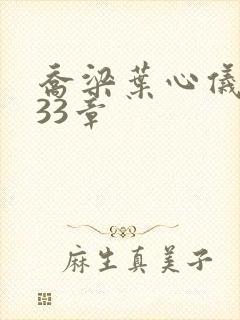 乔梁葉心儀
33章
麻生真美子